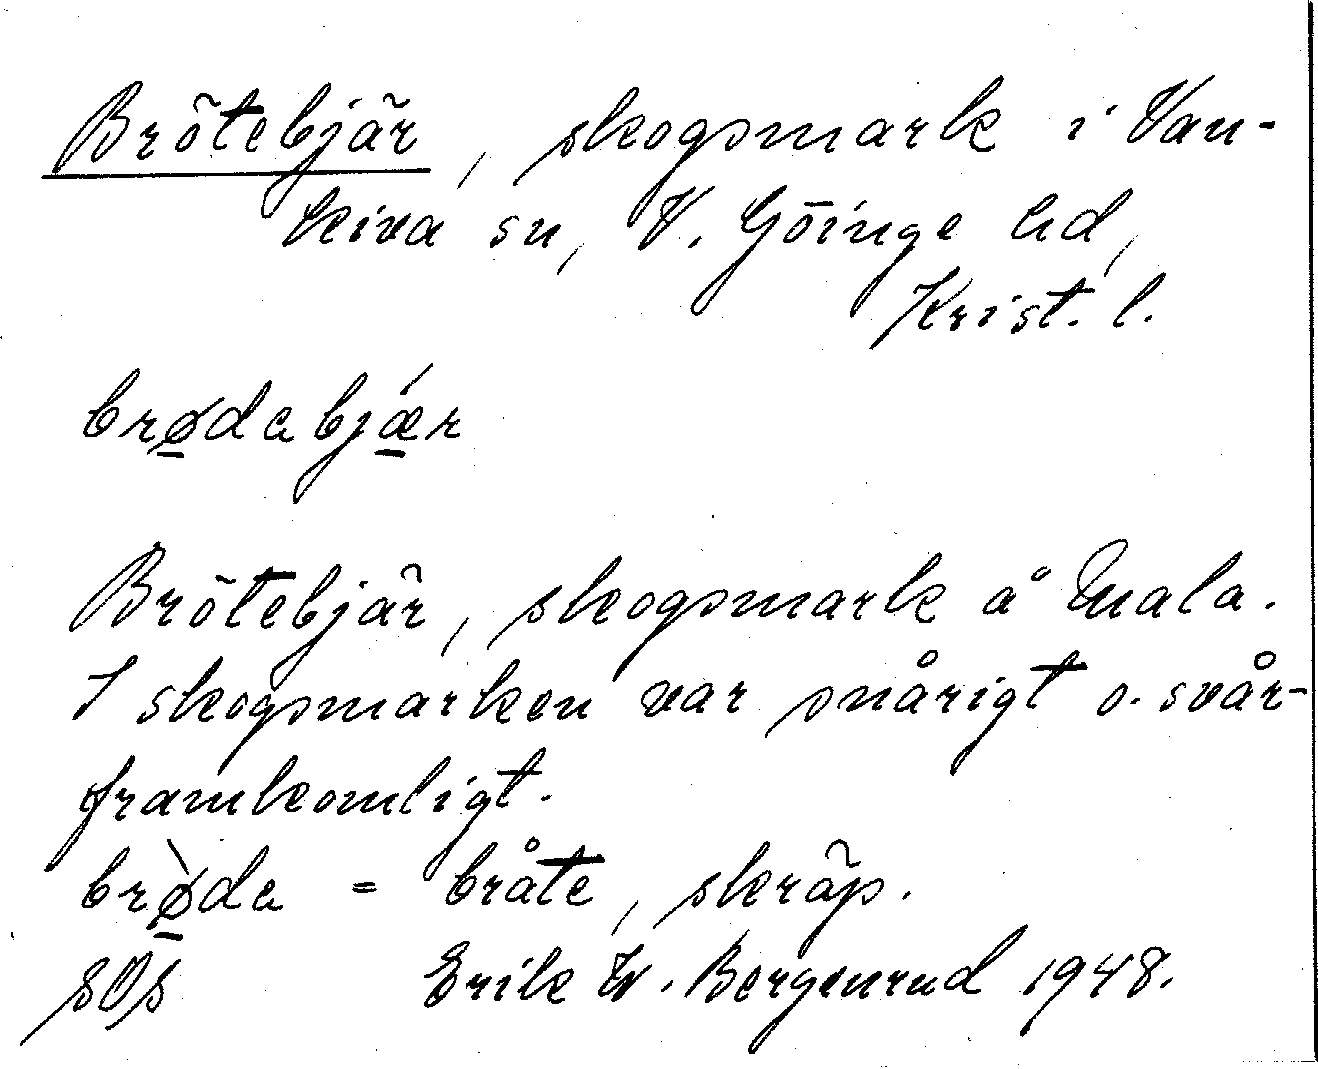 Brötebjär, skogsmark i Van-
kiva sn, V. Göinge hd,
Krist. l.
brødabjǽr
Brötebjär, skogsmark å Mala.
I skogsmarken var snårigt o. svår-
framkomligt.
brø̀da = bråte, skräp.
SOS Erik W. Bergenrud 1948.